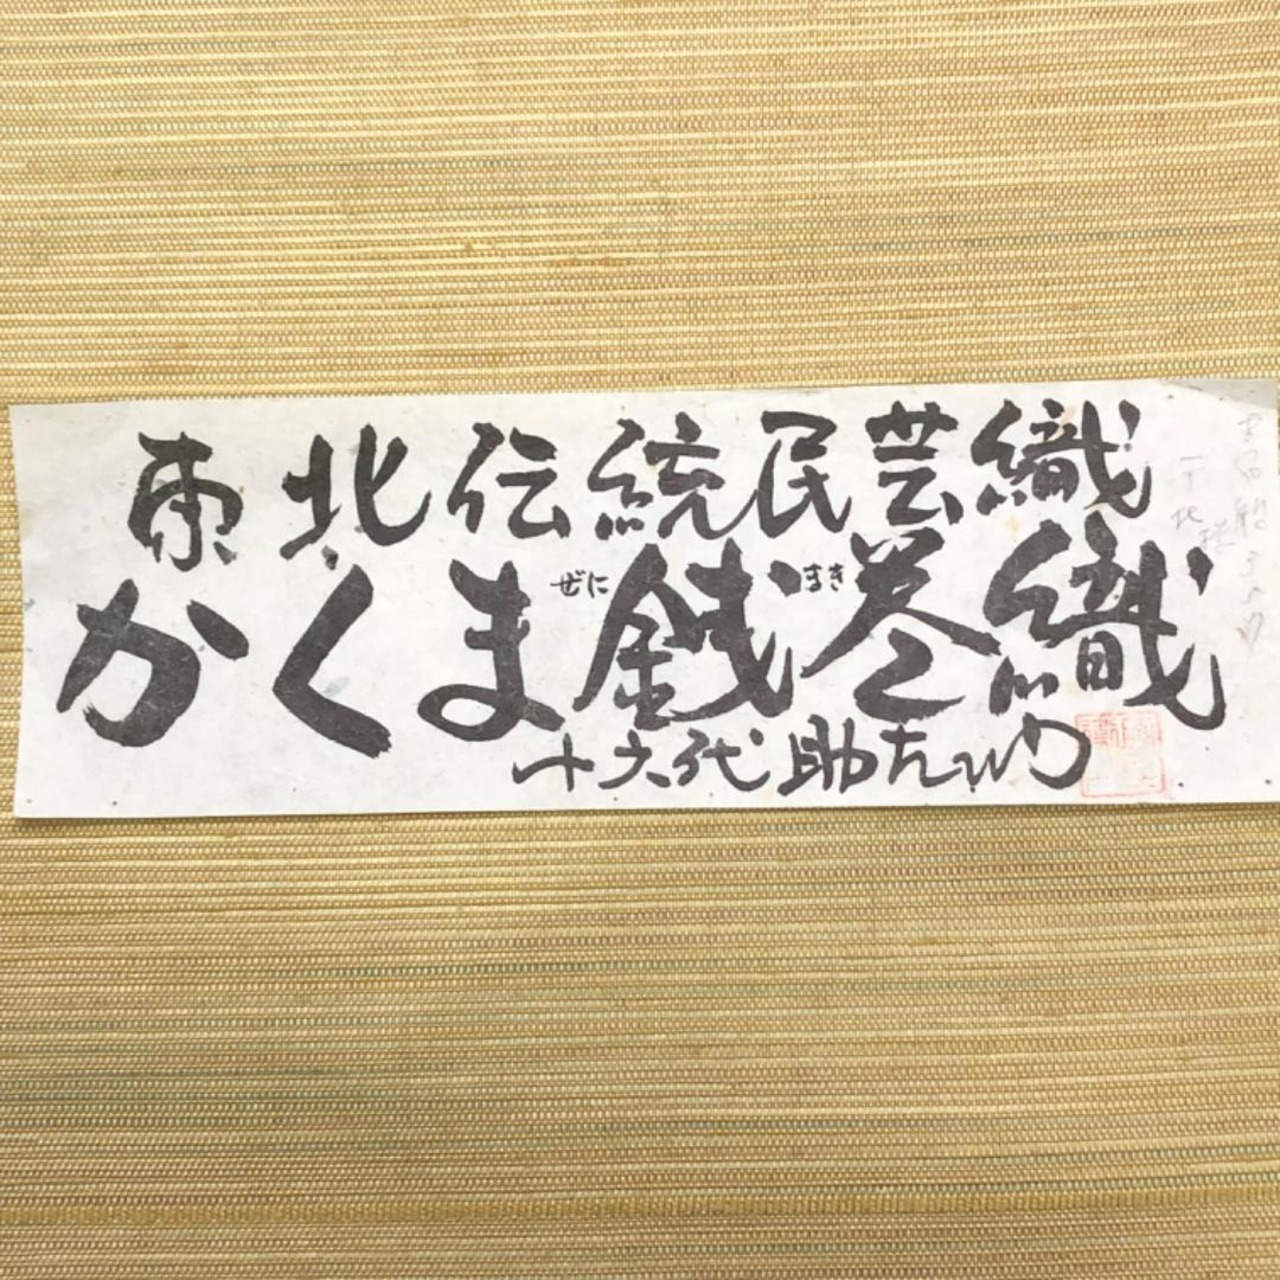 東北伝統民芸織
かくま銭巻織
ぜに まき
十六代 助左ヱ門